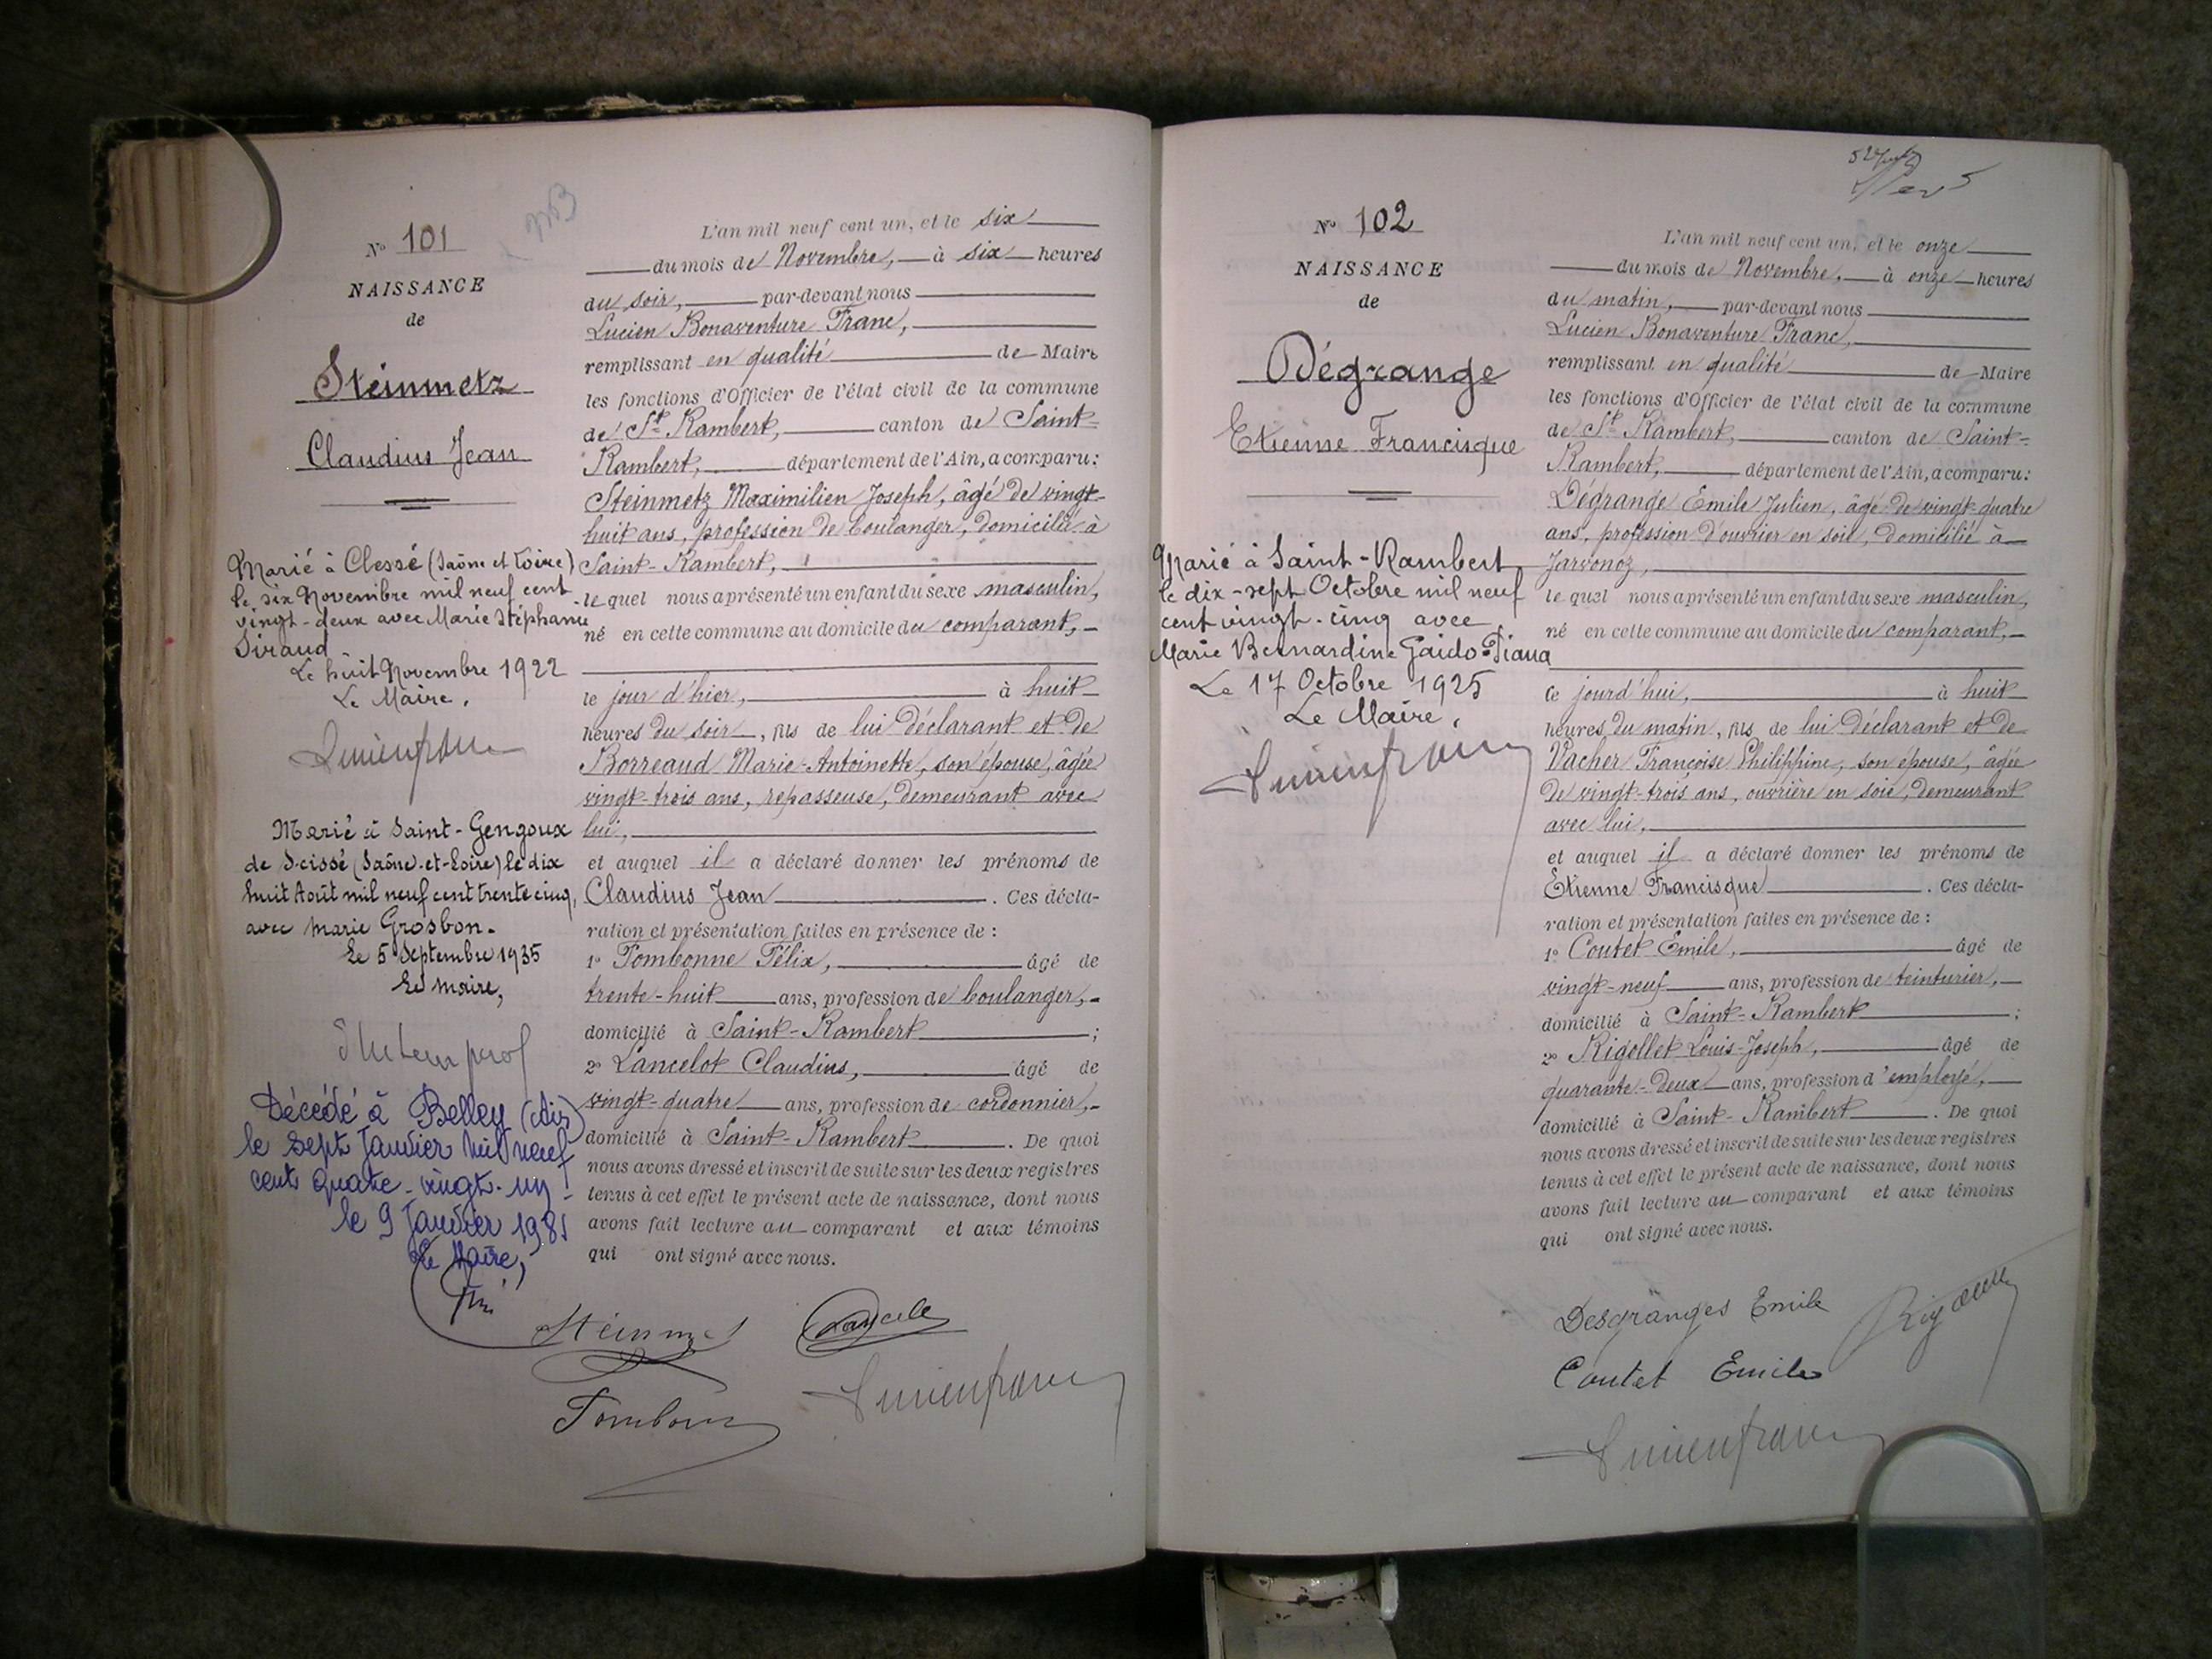 Nº 101
NAISSANCE
de
Steinmetz
Claudius Jean
Marié à Clessé (Saône et Loire)
le six Novembre mil neuf cent
vingt-deux avec Marie Stéphanie
Siraud
Le huit Novembre 1922
Le Maire,
Marié à Saint-Gengoux
de Scissé (Saône-et-Loire) le dix
huit Août mil neuf cent trente cinq,
avec Marie Grosbon.
Le 5 Septembre 1935
Le Maire,
Décédé à Belley (Ain)
le sept Janvier mil neuf
cent quatre-vingt-un
le 9 Janvier 1981
Le Maire,
L'an mil neuf cent un, et le six
du mois de Novembre, à six heures
du soir, par-devant nous
Lucien Bonaventure Franc,
remplissant en qualité de Maire
les fonctions d'Officier de l'état civil de la commune
de St Rambert, canton de Saint-
Rambert, département de l'Ain, a comparu:
Steinmetz Maximilien Joseph, âgé de vingt-
huit ans, profession de boulanger, domicilié à
Saint-Rambert,
lequel nous a présenté un enfant du sexe masculin,
né en cette commune au domicile du comparant,
le jour d'hier, à huit
heures du soir, fils de lui déclarant et de
Borreaud Marie-Antoinette, son épouse, âgée
vingt-trois ans, repasseuse, demeurant avec
lui,
et auquel il a déclaré donner les prénoms de
Claudius Jean. Ces décla-
ration et présentation faites en présence de :
1º Tombonne Félix, âgé de
trente-huit ans, profession de boulanger,
domicilié à Saint-Rambert ;
2º Lancelot Claudius, âgé de
vingt-quatre ans, profession de cordonnier,
domicilié à Saint-Rambert. De quoi
nous avons dressé et inscrit de suite sur les deux registres
tenus à cet effet le présent acte de naissance, dont nous
avons fait lecture au comparant et aux témoins
qui ont signé avec nous.
Nº 102
NAISSANCE
de
Dégrange
Etienne Francisque
Marié à Saint-Rambert
le dix-sept Octobre mil neuf
cent vingt-cinq avec
Marie Bernardine Gaido-Piana
Le 17 Octobre 1925
Le Maire,
L'an mil neuf cent un, et le onze
du mois de Novembre, à onze heures
du matin, par-devant nous
Lucien Bonaventure Franc,
remplissant en qualité de Maire
les fonctions d'Officier de l'état civil de la commune
de St Rambert, canton de Saint-
Rambert, département de l'Ain, a comparu:
Dégrange Emile Julien, âgé de vingt-quatre
ans, profession d'ouvrier en soie, domicilié à
Javornoz,
lequel nous a présenté un enfant du sexe masculin,
né en cette commune au domicile du comparant,
ce jourd'hui, à huit
heures du matin, fils de lui déclarant et de
Vacher Françoise Philippine, son épouse, âgée
de vingt-trois ans, ouvrière en soie, demeurant
avec lui,
et auquel il a déclaré donner les prénoms de
Etienne Francisque. Ces décla-
ration et présentation faites en présence de :
1º Coutet Emile, âgé de
vingt-neuf ans, profession de teinturier,
domicilié à Saint-Rambert ;
2º Rigollet Louis-Joseph, âgé de
quarante-deux ans, profession d'employé,
domicilié à Saint-Rambert. De quoi
nous avons dressé et inscrit de suite sur les deux registres
tenus à cet effet le présent acte de naissance, dont nous
avons fait lecture au comparant et aux témoins
qui ont signé avec nous.
Desgranges Emile
Coutet Emile